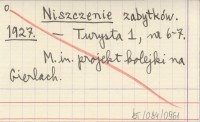 Niszczenie zabytków.
1927. — Turysta 1, na 6-7.
M. in. projekt kolejki na
Gierlach.